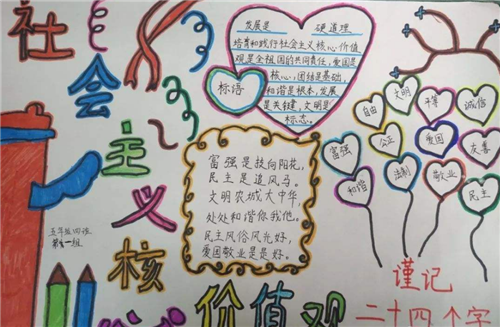 社会主义核心价值观
发展是 硬道理
培育和践行社会主义核心价值
观是全祖国的共同责任,爱国是
核心,团结是基础,
和谐是根本,发展
是关键,文明是
标志。
标语
富强是扶向阳花,
民主是追风马。
文明农城大中华,
处处和谐你我他。
民主风俗风光好,
爱国敬业是最好。
自由
文明
平等
诚信
富强
公正
爱国
友善
和谐
法制
敬业
民主
五年级四班
第 一组
谨记
二十四个字